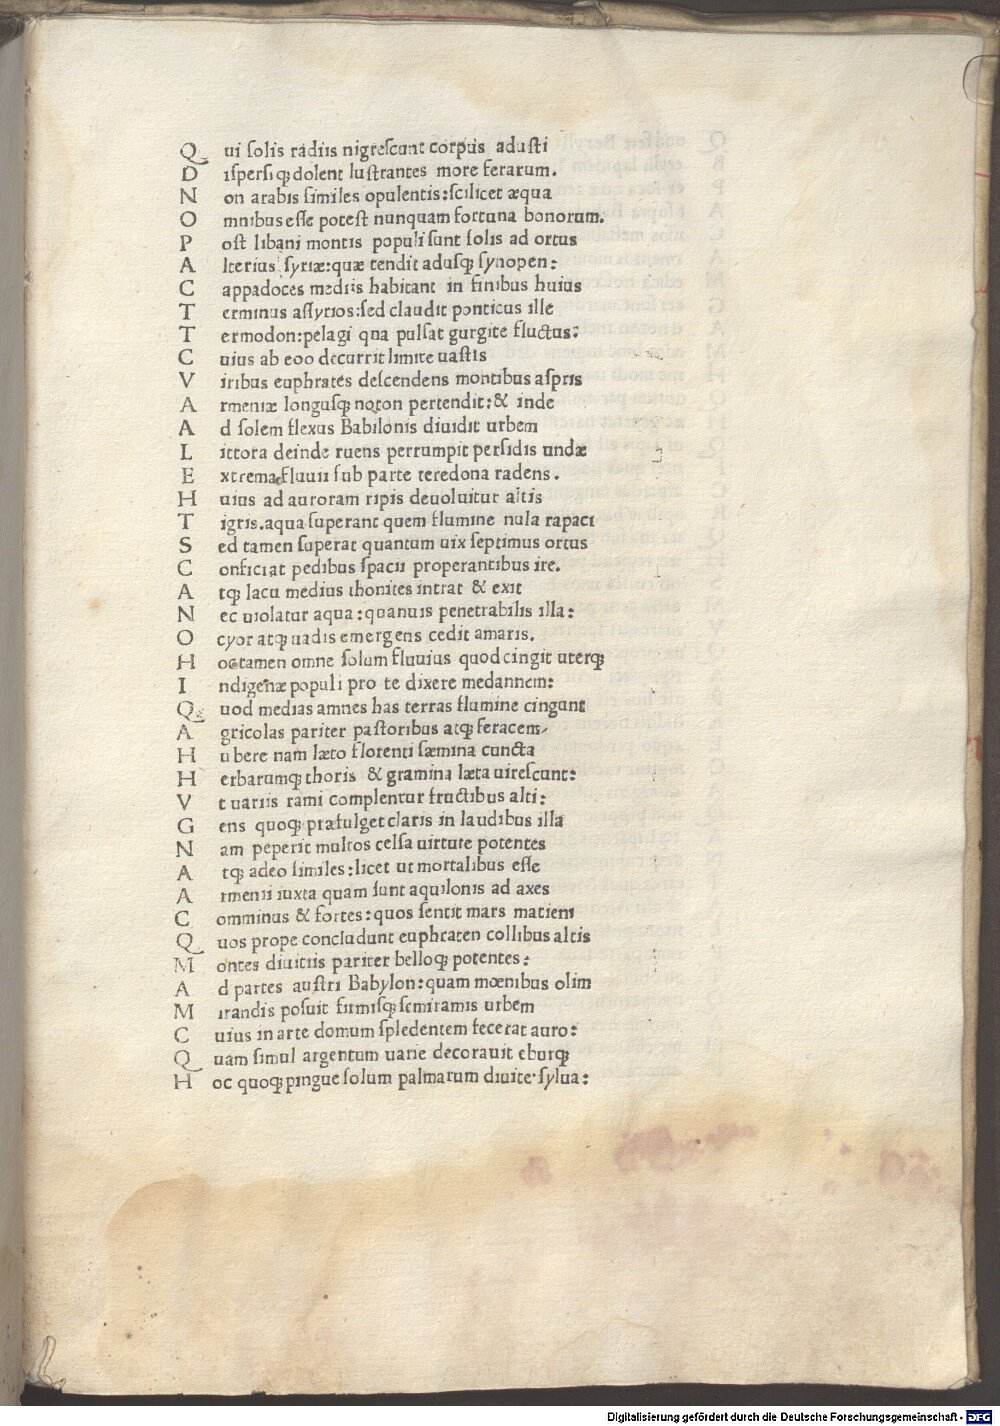 Qui solis radiis nigrescunt corpus adusti
Dispersi qꝫ dolent lustrantes more ferarum.
Non arabis similes opulentis: scilicet æqua
Omnibus esse potest nunquam fortuna bonorum.
Post libani montis populi sunt solis ad ortus
Alterius syriæ: quæ tendit adusqꝫ synopen:
Cappadoces mediis habitant in finibus huius
Terminus assyrios: sed claudit ponticus ille
Termodon: pelagi qua pulsat gurgite fluctus:
Cuius ab eoo decurrit limite uastis
Viribus euphrates descendens montibus aspris
Armeniæ longusqꝫ noton pertendit: & inde
Ad solem flexus Babilonis diuidit urbem
Littora deinde ruens perrumpit persidis undæ
Extrema fluuii sub parte teredona radens.
Huius ad auroram ripis deuoluitur altis
Tigris. aqua superant quem flumine nula rapaci
Sed tamen superat quantum uix septimus ortus
Conficiat pedibus spacii properantibus ire.
Atqꝫ lacu medius thonites intrat & exit
Nec uiolatur aqua: quanuis penetrabilis illa:
Ocyor atqꝫ uadis emergens cedit amaris.
Hoc tamen omne solum fluuius quod cingit uterqꝫ
Indigenæ populi pro te dixere medannem:
Quod medias amnes has terras flumine cingunt
Agricolas pariter pastoribus atqꝫ feracem,
Hubere nam læto florenti sæmina cuncta
Herbarumqꝫ thoris & gramina læta uirescunt:
Vt uariis rami complentur fructibus alti:
Gens quoqꝫ præfulget claris in laudibus illa
Nam peperit multos celsa uirtute potentes
Atqꝫ adeo similes: licet ut mortalibus esse
Armenii iuxta quam sunt aquilonis ad axes
Comminus & fortes: quos sentit mars matieni
Quos prope concludunt euphraten collibus altis
Montes diuitiis pariter belloqꝫ potentes:
Ad partes austri Babylon: quam mœnibus olim
Mirandis posuit firmisqꝫ semiramis urbem
Cuius in arte domum spledentem fecerat auro:
Quam simul argentum uarie decorauit eburqꝫ
Hoc quoqꝫ pingue solum palmarum diuite. sylua:
Digitalisierung gefördert durch die Deutsche Forschungsgemeinschaft - DFG